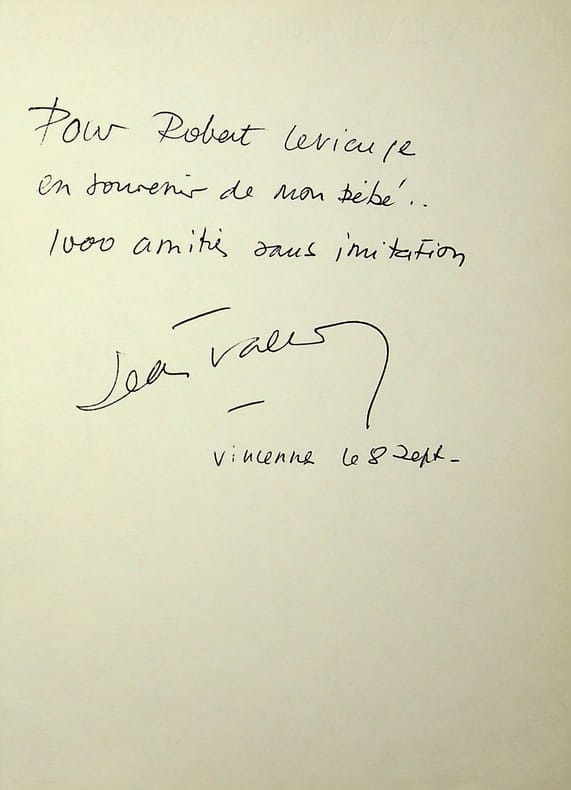 Pour Robert
en souvenir de mon bébé..
1000 amitiés sans imitation
Jean
Vincenne le 8 Sept-